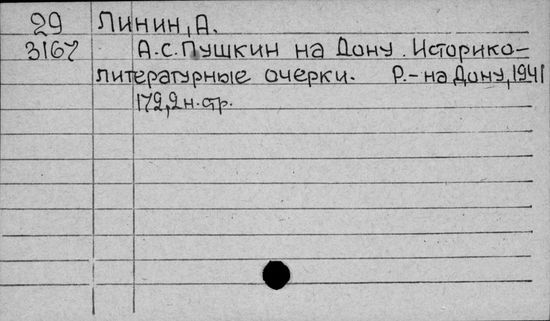 29 Линин, А.
3167 А.С. Пушкин на Дону. Историко-
литературные очерки. Р.-на Дону, 1941
172, 2 н. стр.